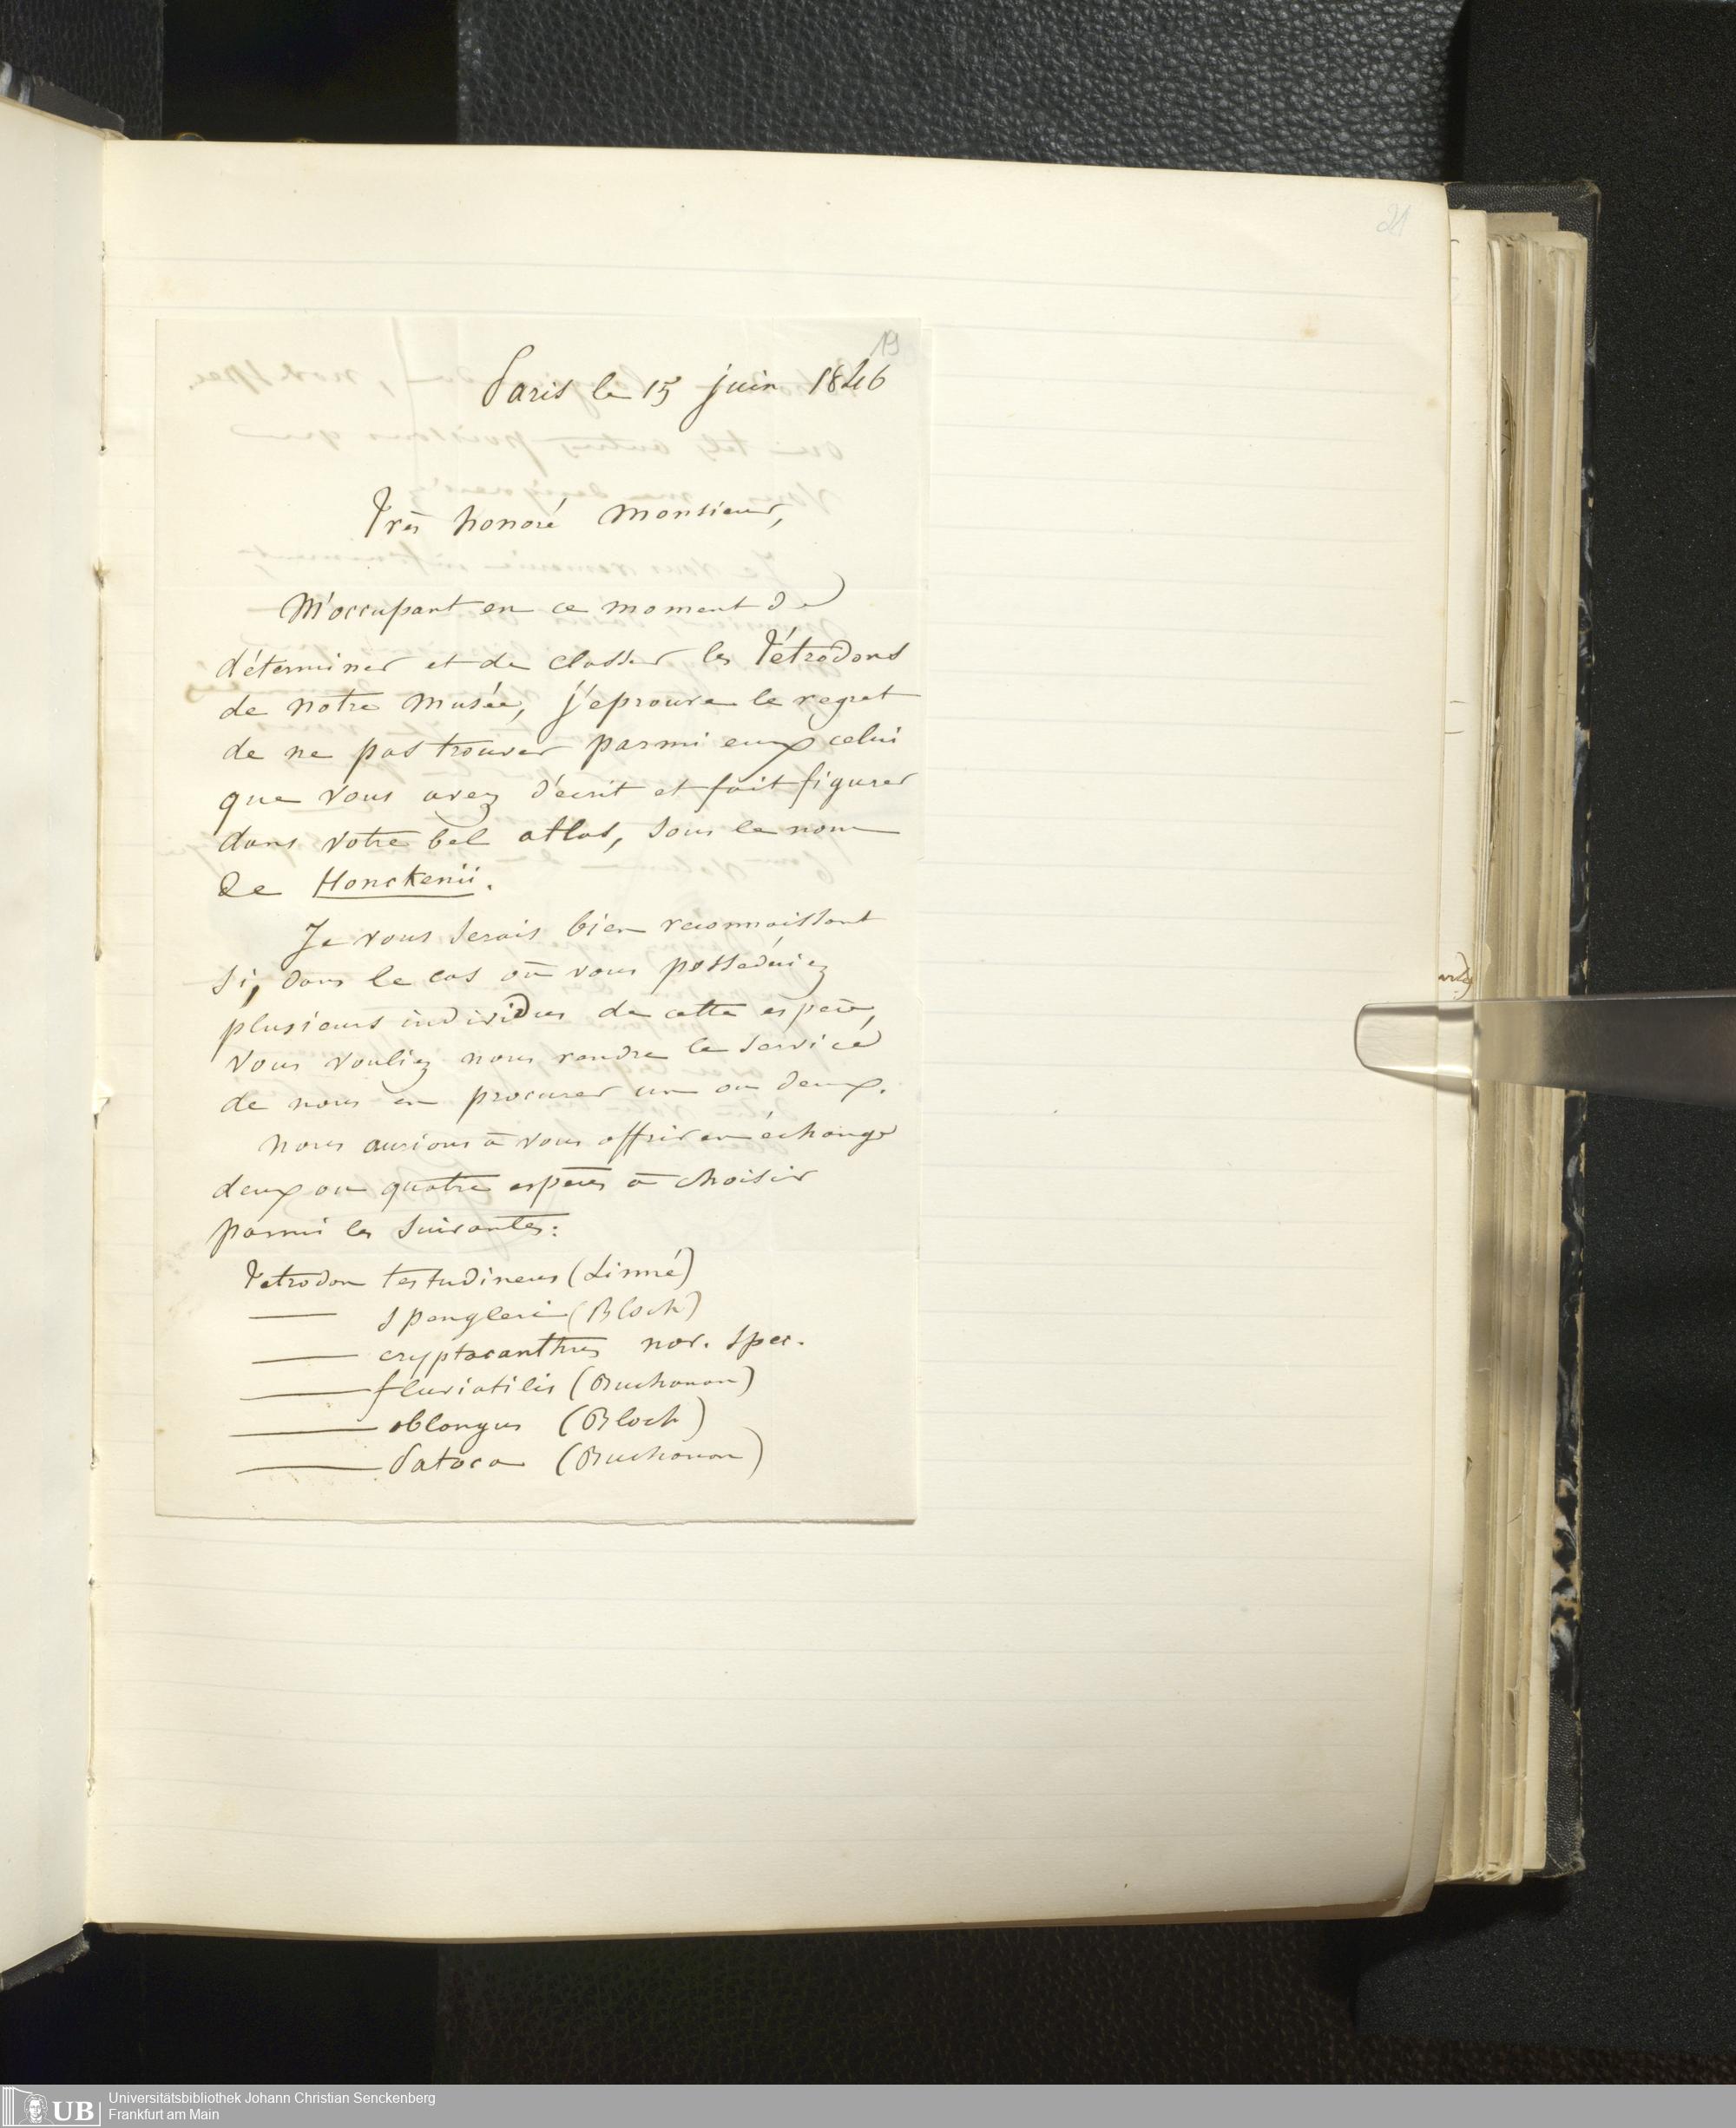 21
19
Paris le 15 juin 1846
Très honoré Monsieur,
M'occupant en ce moment de
déterminer et de classer les Tétrodons
de notre musée, j'éprouve le regret
de ne pas trouver parmi eux celui
que vous avez décrit et fait figurer
dans votre bel atlas, sous le nom
de Honckenii.
Je vous serais bien reconnaissant
si, dans le cas où vous posséderiez
plusieurs individus de cette espèce,
vous vouliez nous rendre le service
de nous en procurer un ou deux.
Nous aurions à vous offrir en échange
deux ou quatre espèces à choisir
parmi les suivantes:
Tetrodon testudineus (Linné)
— spengleri (Bloch)
— cryptacanthus nov. spec.
— fluviatilis (Buchanan)
— oblongus (Bloch)
— Patoca (Buchanan)
UB
Universitätsbibliothek Johann Christian Senckenberg
Frankfurt am Main